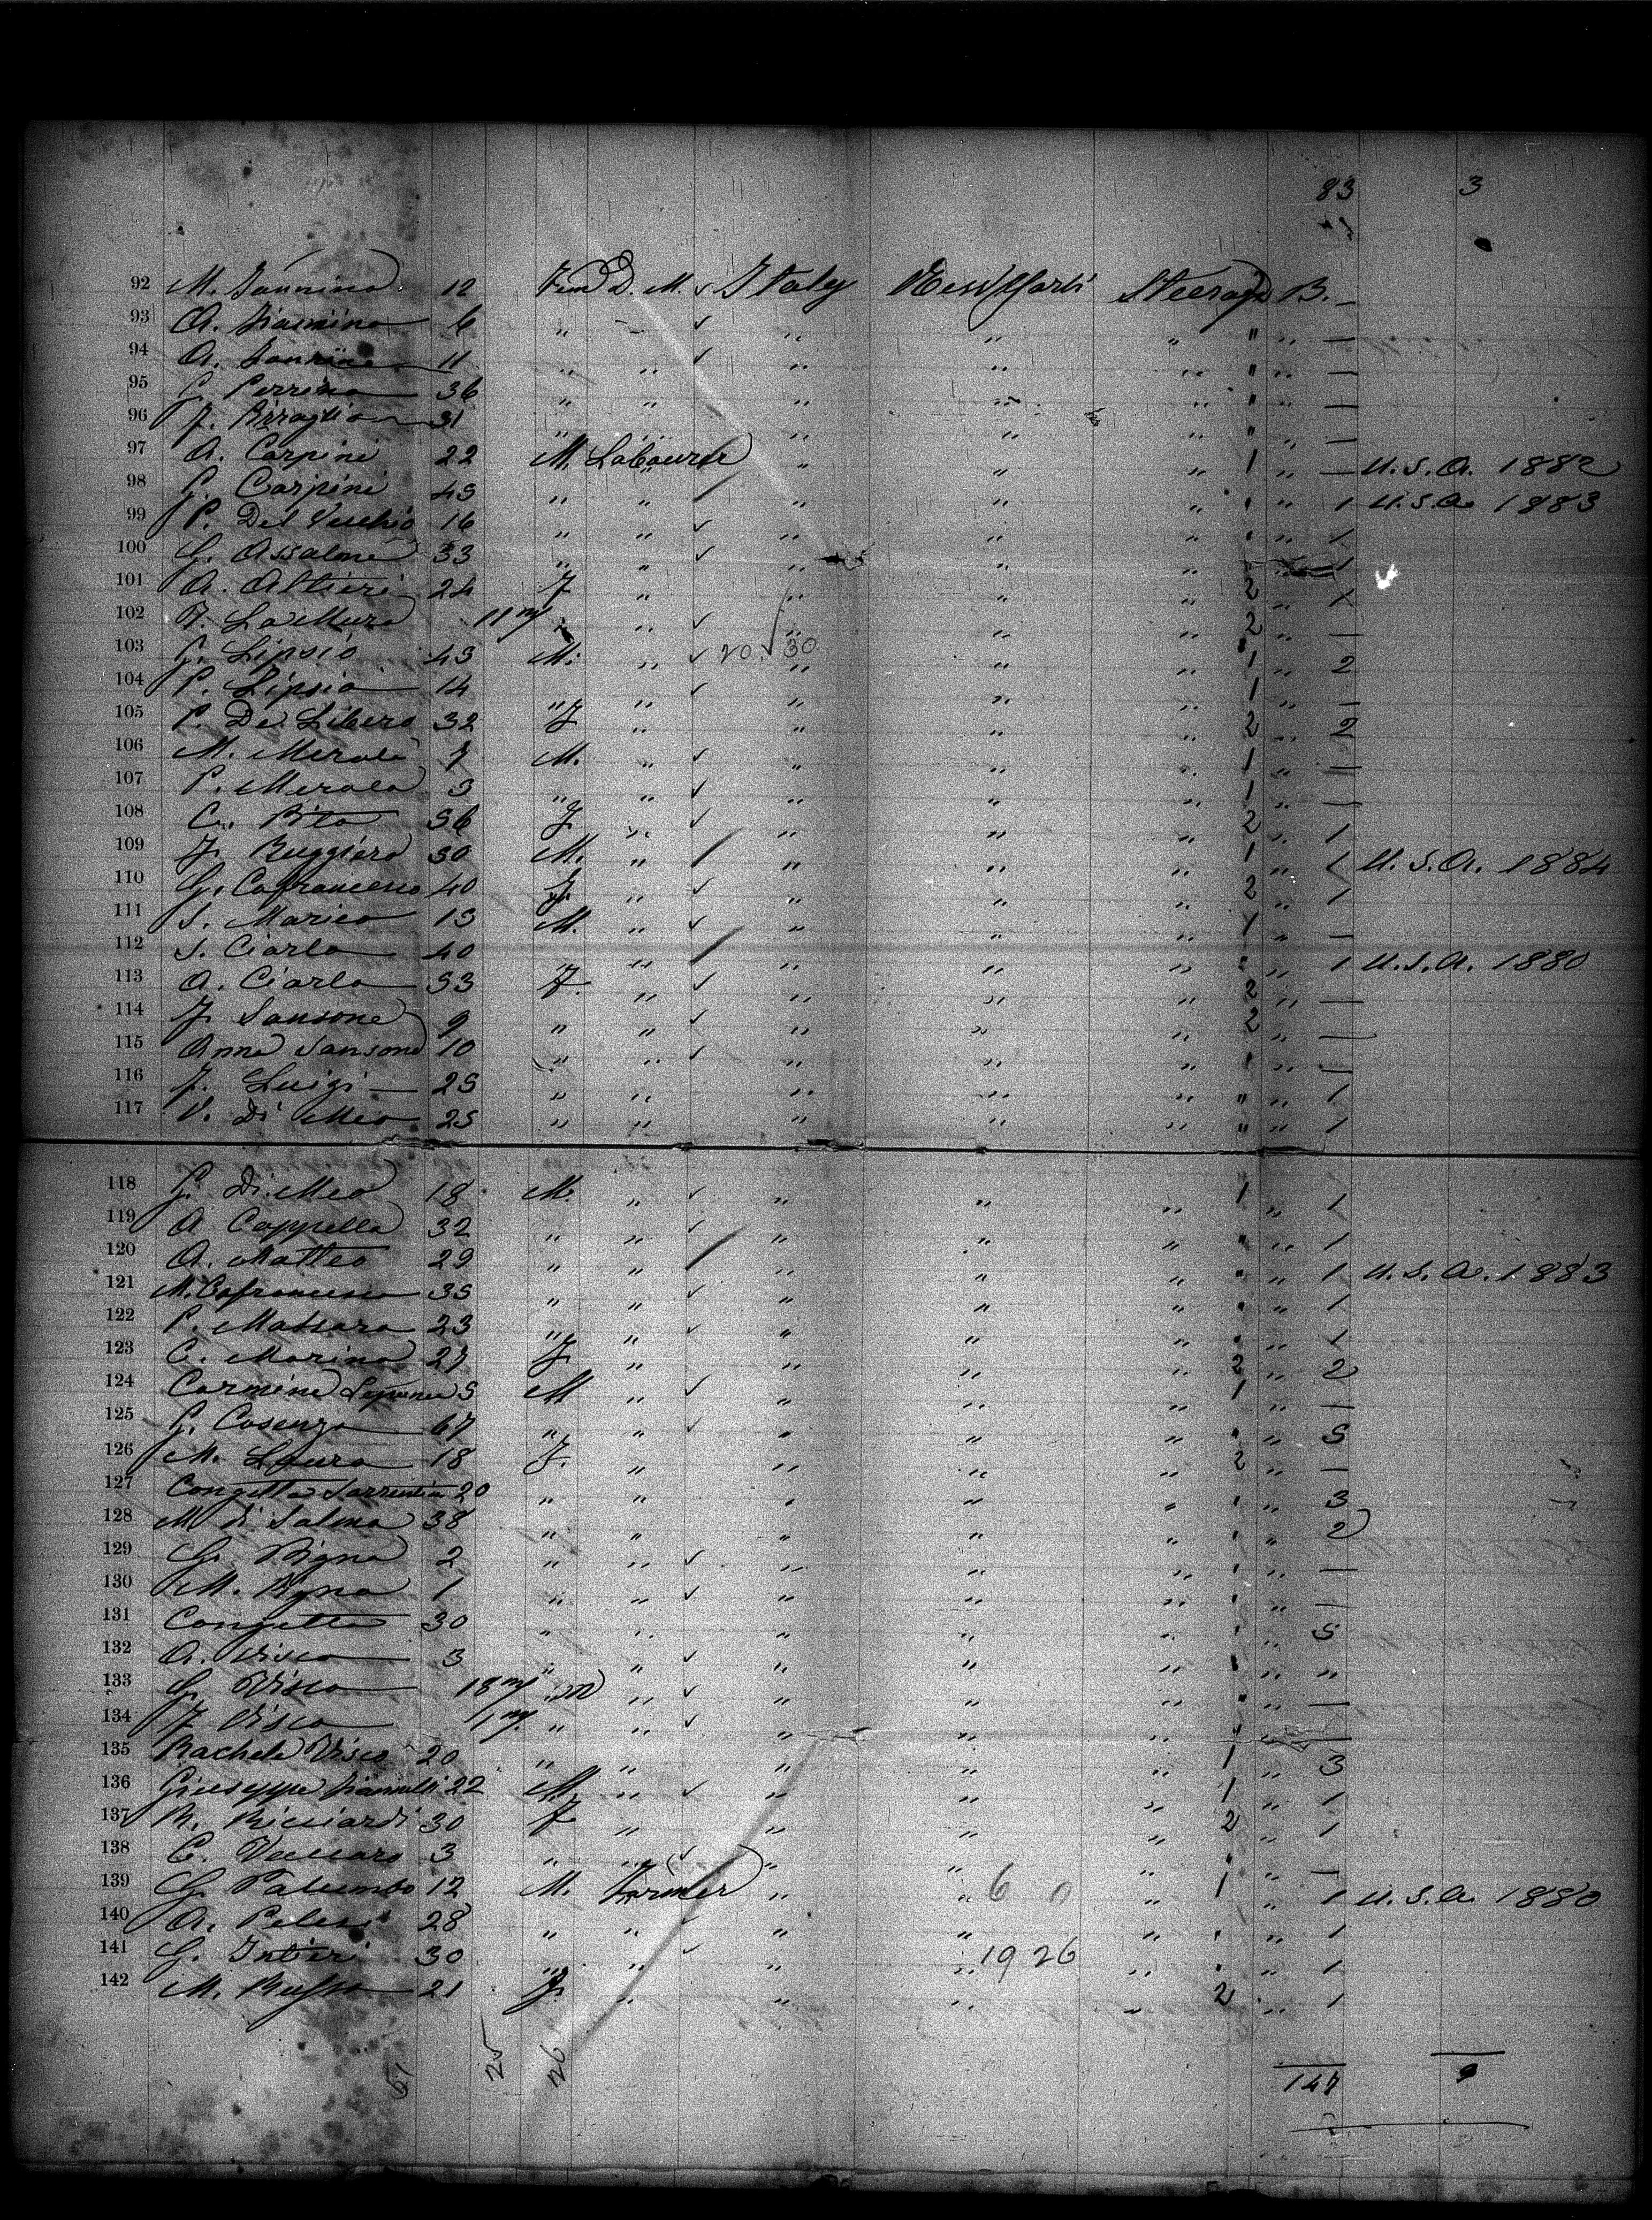 83 3
92 M. Iannino 12 Fem D. M. ✓ Italy New York Steerage 2 B. —
93 A. 6 " - ✓ " " " " " —
94 A. 11 " " ✓ " " " " " —
95 G. Perrino 36 " " " " " " " —
96 F. 31 " " " " " " " —
97 A. Carpini 22 M. Labourer " " " 1 " — U.S.A. 1882
98 G. Carpini 45 " " " " " " " 1 U.S.A. 1883
99 P. Del Vecchio 16 " " ✓ " " " " " 1
100 G. Assalone 33 " " ✓ " " " " " 1
101 A. Altieri 24 F " " " " 2 " 1
102 F. La Mura 11 m/ " " ✓ " " " 2 " —
103 G. Lipsio 43 M. " ✓ 20. 30 " " " 1 " 2
104 P. Lipsio 14 " " ✓ " " " 1 " —
105 P. De Libero 32 F " " " " 2 " 2
106 M. Merola 7 M. " ✓ " " " 1 " —
107 P. Merola 3 " " ✓ " " " 1 " —
108 C. 36 F " ✓ " " " 2 " 1
109 F. Ruggiero 30 M. " " " " 1 " 1 U.S.A. 1884
110 G. Cofrancesco 40 F. " ✓ " " " 2 " 1
111 S. Marico 13 M. " ✓ " " " 1 " —
112 S. Ciarlo 40 " " " " " " " 1 U.S.A. 1880
113 A. Ciarlo 53 F. " ✓ " " " 2 " —
114 F. Sansone 9 " " ✓ " " " 2 " —
115 Anna Sansone 10 " " ✓ " " " " " —
116 F. Luigi — 25 " " " " " " " 1
117 V. Di Meo 25 " " " " " " " 1
118 G. Di Meo 18 M. " ✓ " " " 1 " 1
119 A Cappella 32 " " ✓ " " " " " 1
120 A. Matteo 29 " " " " " " " 1 U.S.A. 1883
121 M. Cofrancesco 35 " " ✓ " " " " " 1
122 P. Massaro 23 " " ✓ " " " " " 1
123 C. Marino 27 F " " " " 2 " 2
124 Carmine 5 M " ✓ " " " 1 " —
125 G. Cosenza 67 " " ✓ " " " " " 5
126 M. Laura 18 F. " " " " 2 " —
127 Congetta Sorrentin 20 " " " " " " " 3
128 M di Salma 38 " " " " " " " 2
129 G. Pigna 2 " " ✓ " " " " " —
130 M. 1 " " ✓ " " " " " —
131 Congetta 30 " " " " " " " 5
132 A. Visco 3 " " ✓ " " " " " "
133 G. Visco 18 m/ " m " ✓ " " " " " —
134 F Visco 1 m/ " " ✓ " " " " " —
135 Rachele Visco 20 " " " " " 1 " 3
136 Giuseppe 22 M " ✓ " " " 1 " 1
137 R. Ricciardi 30 F " " " " 2 " 1
138 C. Vaccaro 3 " " ✓ " " " " " —
139 G. Palumbo 12 M. Farmer " " 6 0 " 1 " 1 U.S.A. 1880
140 A. 28 " " ✓ " " " " " 1
141 G. Intieri 30 " " ✓ " " 19 26 " " " 1
142 M. Russo 21 F. " " " " 2 " 1
51 25 26 147 9